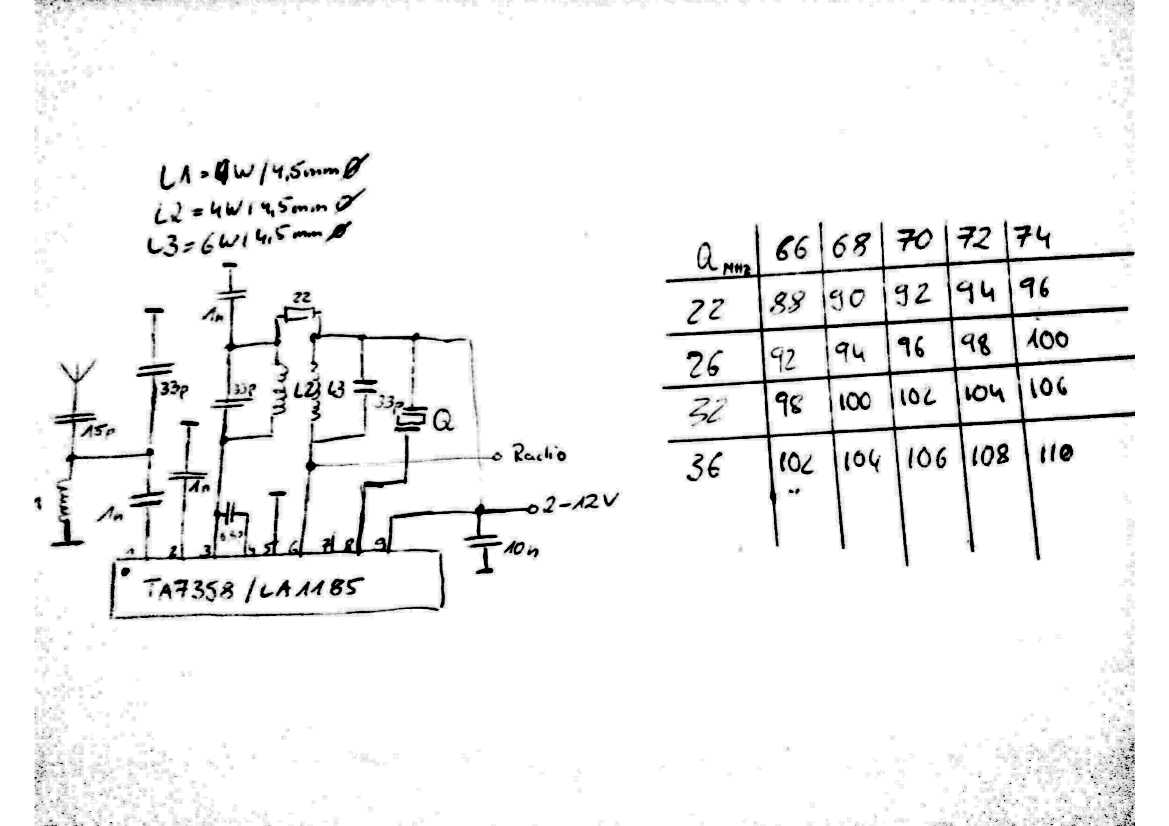 L1 = 4W / 4,5mm Ø
L2 = 4W / 4,5mm Ø
L3 = 6W / 4,5mm Ø
1n
22
33p
33p
L2
L3
33p
Q
15p
1n
1n
Radio
2-12V
10n
1 2 3 4 5 6 7 8 9
TA7358 / LA1185
Q MHz 66 68 70 72 74
22 88 90 92 94 96
26 92 94 96 98 100
32 98 100 102 104 106
36 102 104 106 108 110